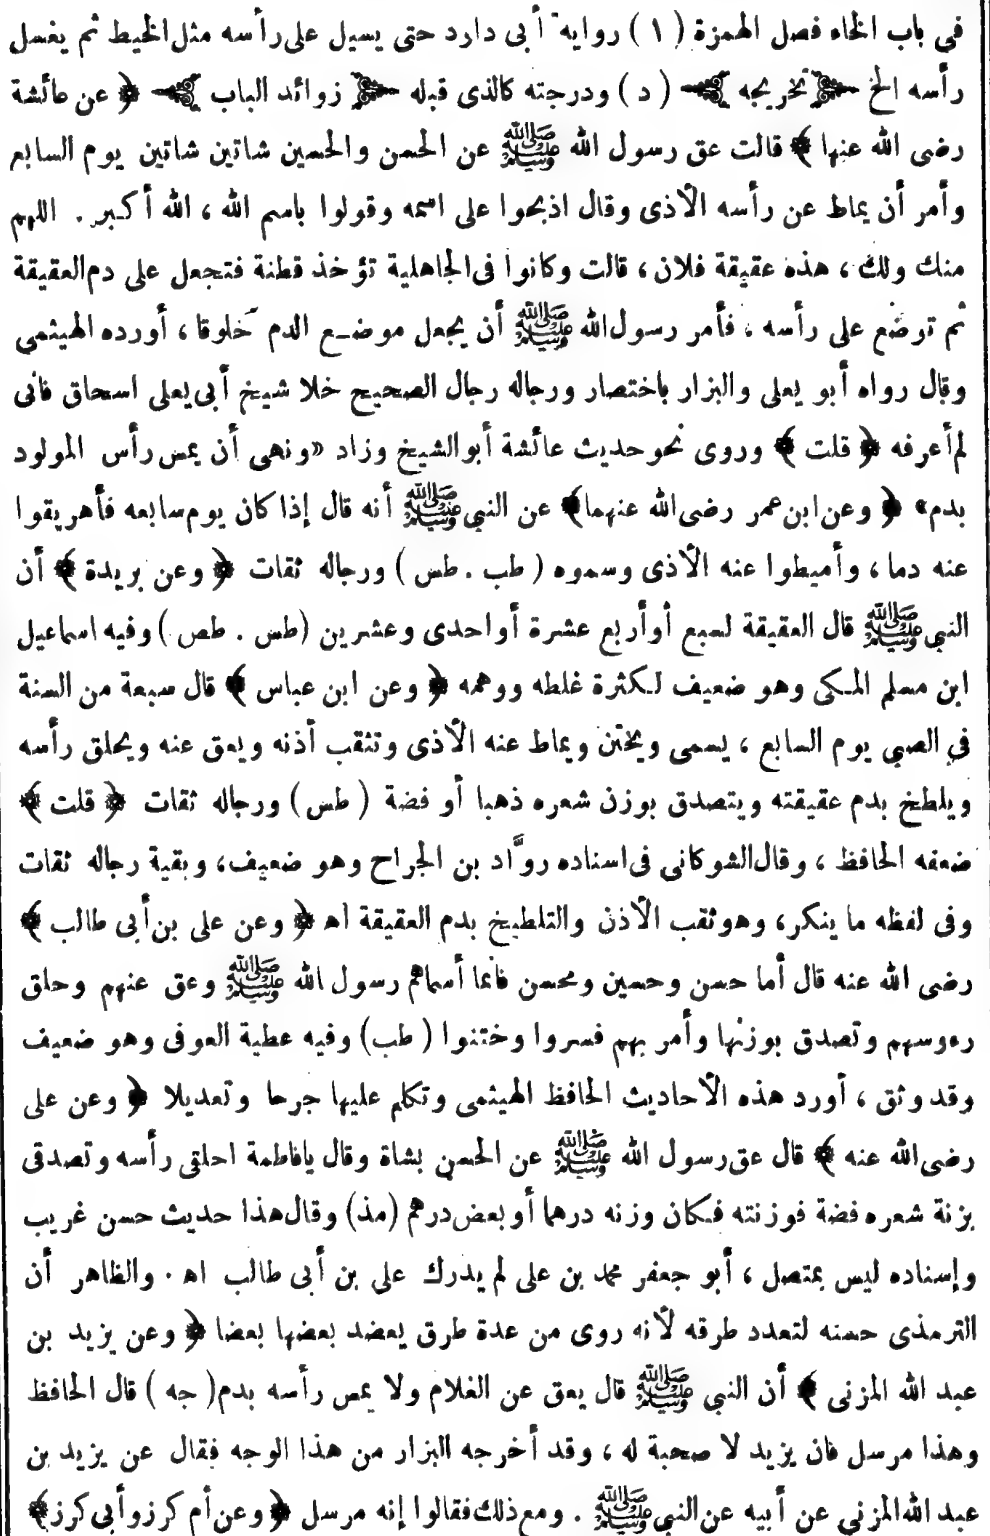 في باب الخاء فصل الهمزة (١) رواية أبى دارد حتى يسيل على رأسه مثل الخيط ثم يغسل
رأسه الخ تخريجه (د) ودرجته كالذى قبله زوائد الباب ﴿ عن عائشة
رضى الله عنها ﴾ قالت عق رسول الله ﷺ عن الحسن والحسين شاتين شاتين يوم السابع
وأمر أن يماط عن رأسه الأذى وقال اذبحوا على اسمه وقولوا باسم الله ، الله أكبر . اللهم
منك ولك ، هذه عقيقة فلان ، قالت وكانوا فى الجاهلية تؤخذ قطنة فتجعل على دم العقيقة
ثم توضع على رأسه ، فأمر رسول الله ﷺ أن يجعل موضع الدم خلوقا ، أورده الهيثمى
وقال رواه أبو يعلى والبزار باختصار ورجاله رجال الصحيح خلا شيخ أبى يعلى اسحاق فانى
لم أعرفه ﴿ قلت ﴾ وروى نحو حديث عائشة أبو الشيخ وزاد «ونهى أن يمس رأس المولود
بدم» ﴿ وعن ابن عمر رضى الله عنهما ﴾ عن النبى ﷺ أنه قال إذا كان يوم سابعه فأهريقوا
عنه دما ، وأميطوا عنه الأذى وسموه ( طب . طس ) ورجاله ثقات ﴿ وعن بريدة ﴾ أن
النبى ﷺ قال العقيقة لسبع أو أربع عشرة أو احدى وعشرين (طس . طص ) وفيه اسماعيل
ابن مسلم المكى وهو ضعيف لكثرة غلطه ووهمه ﴿ وعن ابن عباس ﴾ قال سبعة من السنة
في الصبي يوم السابع ، يسمى ويختن ويماط عنه الأذى وتثقب أذنه ويعق عنه ويحلق رأسه
ويلطخ بدم عقيقته ويتصدق بوزن شعره ذهبا أو فضة ( طس ) ورجاله ثقات ﴿ قلت ﴾
ضعفه الحافظ ، وقال الشوكانى فى اسناده روَّاد بن الجراح وهو ضعيف ، وبقية رجاله ثقات
وفى لفظه ما ينكر ، وهو ثقب الأذن والتلطيخ بدم العقيقة اه ﴿ وعن على بن أبى طالب ﴾
رضى الله عنه قال أما حسن وحسين ومحسن فانما أسماهم رسول الله ﷺ وعق عنهم وحلق
رءوسهم وتصدق بوزنها وأمر بهم فسروا وختنوا ( طب) وفيه عطية العوفى وهو ضعيف
وقد وثق ، أورد هذه الأحاديث الحافظ الهيثمى وتكلم عليها جرحا وتعديلا ﴿ وعن على
رضى الله عنه ﴾ قال عق رسول الله ﷺ عن الحسن بشاة وقال يا فاطمة احلقى رأسه وتصدقى
بزنة شعره فضة فوزنته فكان وزنه درهما أو بعض درهم (مذ) وقال هذا حديث حسن غريب
وإسناده ليس بمتصل ، أبو جعفر محمد بن على لم يدرك على بن أبى طالب اه . والظاهر أن
الترمذى حسنه لتعدد طرقه لأنه روى من عدة طرق يعضد بعضها بعضا ﴿ وعن يزيد بن
عبد الله المزنى ﴾ أن النبى ﷺ قال يعق عن الغلام ولا يمس رأسه بدم ( جه ) قال الحافظ
وهذا مرسل فان يزيد لا صحبة له ، وقد أخرجه البزار من هذا الوجه فقال عن يزيد بن
عبد الله المزنى عن أبيه عن النبى ﷺ . ومع ذلك فقالوا إنه مرسل ﴿ وعن أم كرز وأبى كرز ﴾